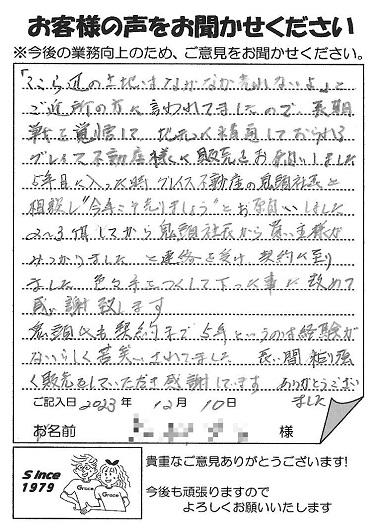 お客様の声をお聞かせください
※今後の業務向上のため、ご意見をお聞かせください。
「ここら辺の土地はなかなか売れないよ」と
ご近所の方に言われてましたので 長期
戦を覚悟して 地元に精通しておられる
グレイス不動産様に販売をお願いしました
5年目に入った時 グレイス不動産の鬼頭社長と
相談し "今年こそ売りましょう" とお願いしました
2〜3ヶ月してから 鬼頭社長から 買い主様が
みつかりました と連絡を受け 契約に至り
ました 色々手をつくして下った事に 改めて
感謝致します
鬼頭氏も契約まで 5年というのは経験が
ないらしく 苦笑いされてました 長い間 粘り強
く販売をしていただき 感謝しています ありがとうござい
ました
ご記入日 2023年 12月 10日
お名前 様
Since
1979
Grace
Grace
貴重なご意見ありがとうございます!
今後も頑張りますので
よろしくお願いいたします